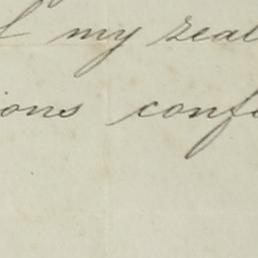 f my zeal
ions conf